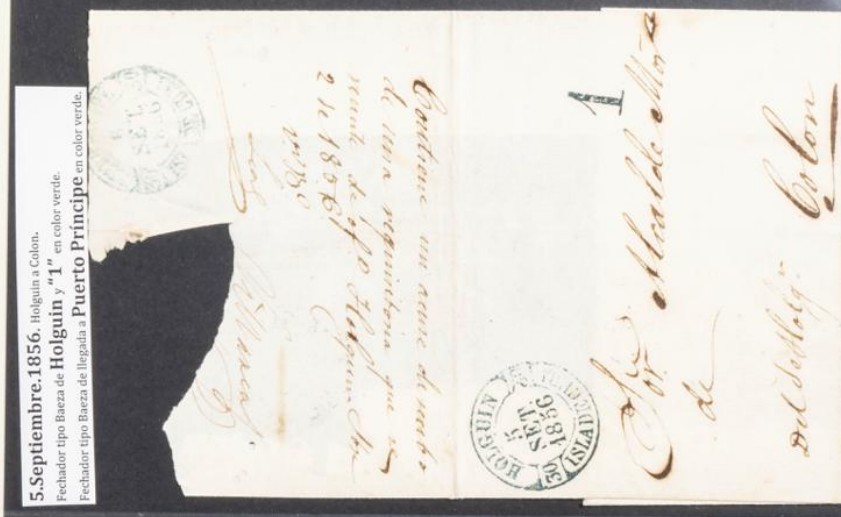 5.Septiembre.1856. Holguin a Colon.
Fechador tipo Baeza de Holguin y "1" en color verde.
Fechador tipo Baeza de llegada a Puerto Príncipe en color verde.
SET
Contiene un acuse de recibo
de una requisitoria que se
remite de ofo Holguin
2 de 1856
1
HOLGUIN
5
SET
1856
ISLA DE CUBA
Sor Alcalde Mor
de Colon
Del de Holgn